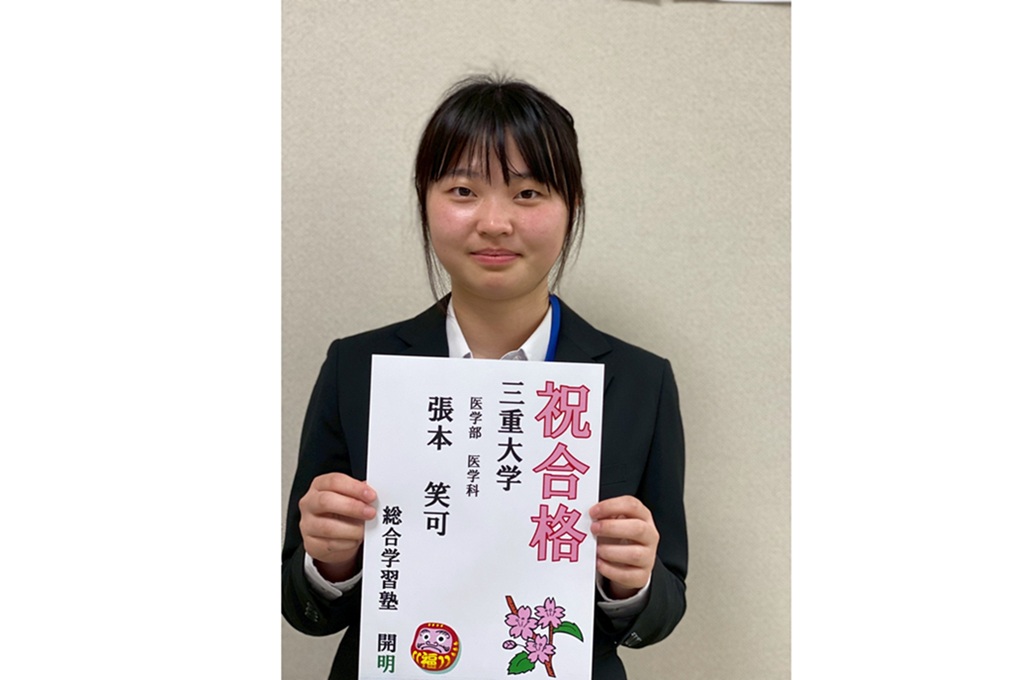 祝合格
三重大学
医学部 医学科
張本 笑可
総合学習塾 開明
福